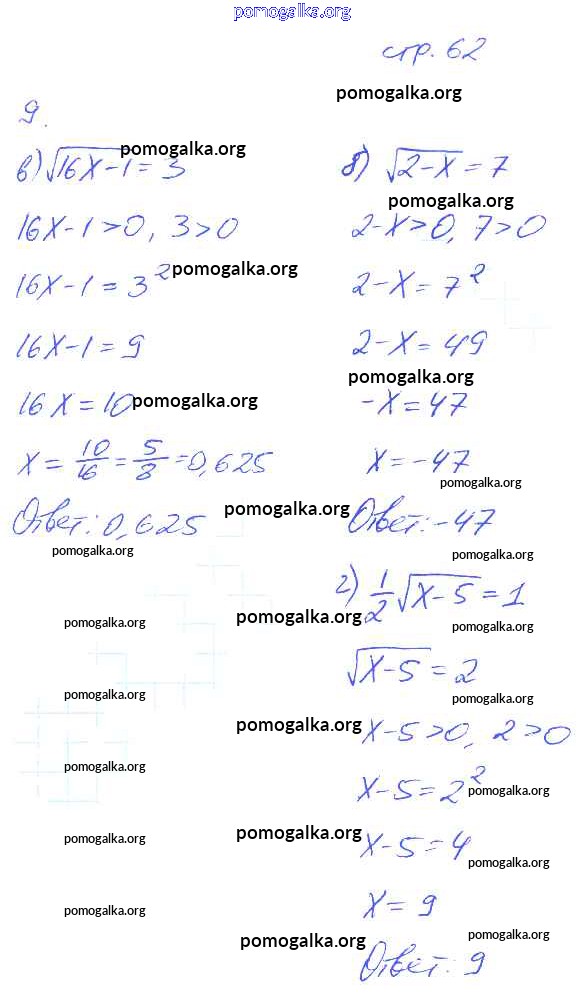 pomogalka.org
стр. 62
pomogalka.org
9.
в) √16x-1 = 3
pomogalka.org
16x-1>0, 3>0
16x-1 = 3²
pomogalka.org
16x-1 = 9
16x = 10
pomogalka.org
x = 10/16 = 5/8 = 0,625
Ответ: 0,625
pomogalka.org
pomogalka.org
б) √2-x = 7
pomogalka.org
2-x>0, 7>0
2-x = 7²
2-x = 49
pomogalka.org
-x = 47
x = -47
pomogalka.org
Ответ: -47
pomogalka.org
г) 1/2 √x-5 = 1
pomogalka.org
pomogalka.org
pomogalka.org
√x-5 = 2
pomogalka.org
pomogalka.org
x-5>0, 2>0
pomogalka.org
pomogalka.org
x-5 = 2²
pomogalka.org
x-5 = 4
pomogalka.org
pomogalka.org
pomogalka.org
x = 9
pomogalka.org
pomogalka.org
pomogalka.org
Ответ: 9